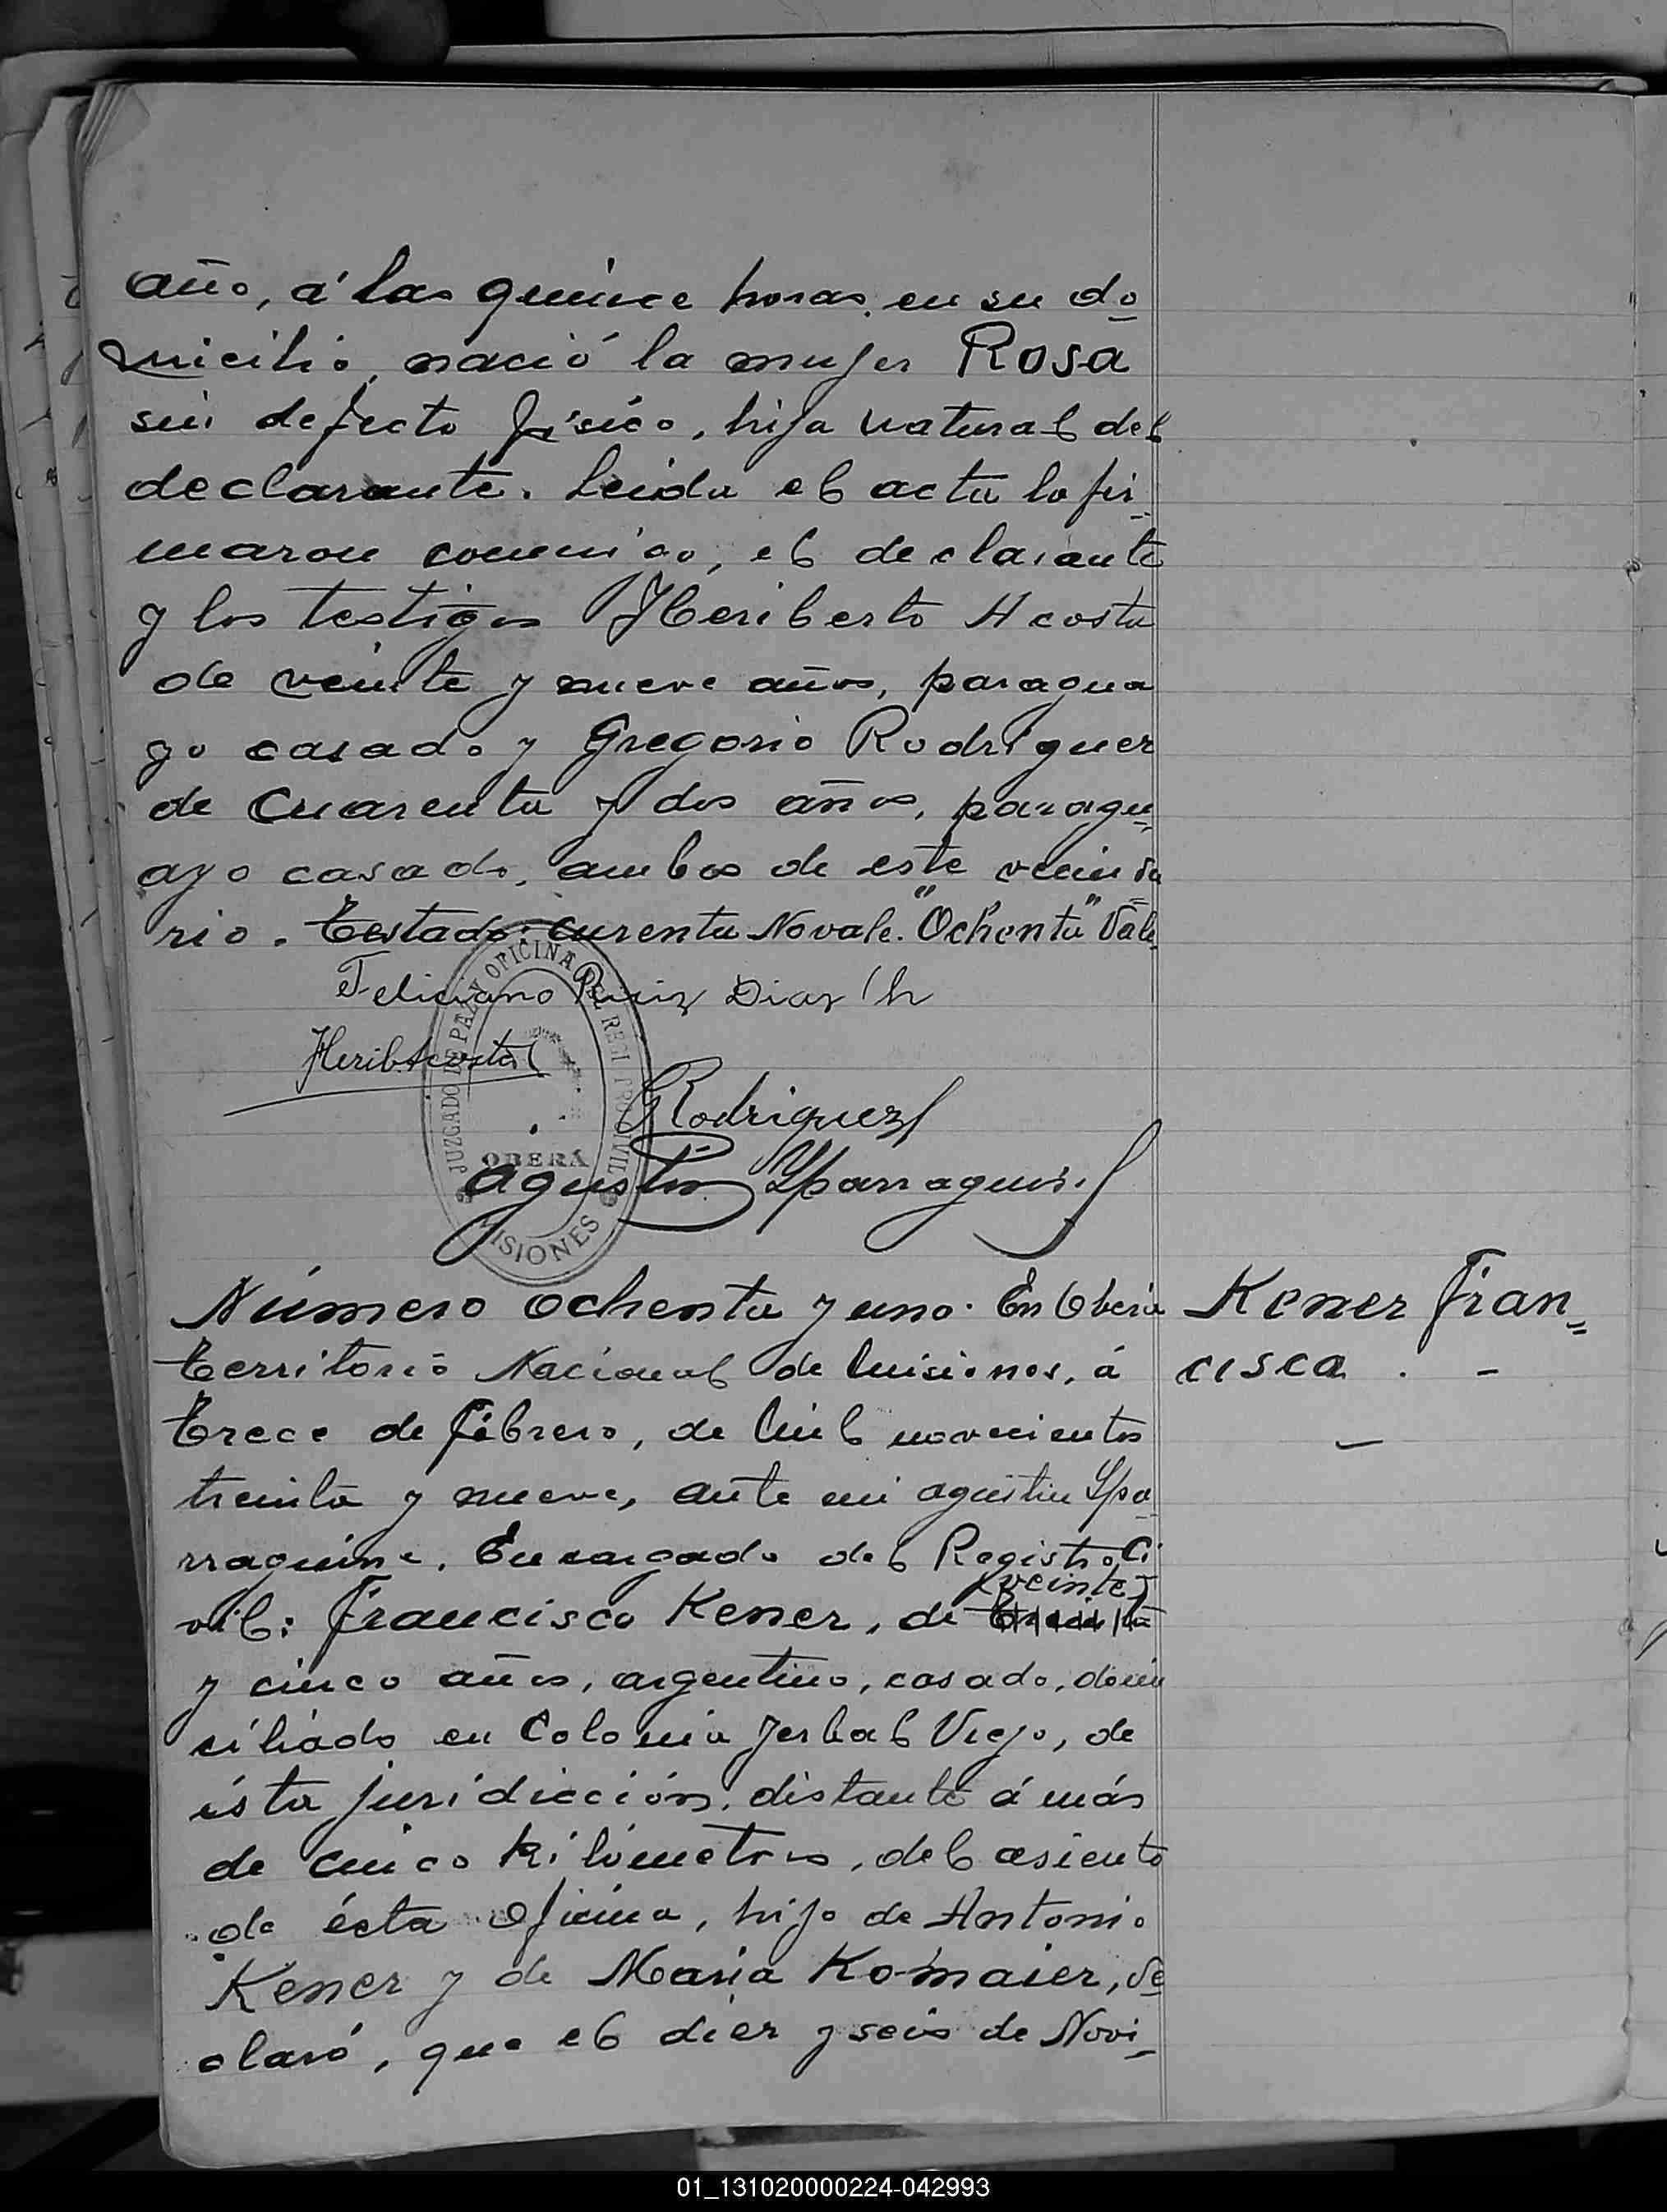 año, á las quince horas, en su do
micilio, nació la mujer Rosa
sin defecto físico, hija natural del
declarante. Leida el acta la fir
maron conmigo, el declarante
y los testigos Heriberto Acosta
de veinte y nueve años, paragua
yo casado y Gregorio Rodriguez
de cuarenta y dos años, paragu
ayo casado, ambos de este vecinda
rio. Testado: curenta No vale. "Ochenta" Vale
Feliciano Ruiz Diaz (h
Herib Acosta
GRodriguez
JUZGADO DE PAZ Y OFICINA DEL REGISTRO CIVIL
OBERÁ
MISIONES
Agustin Yparraguirre
Número ochenta y uno. En Oberá
Territorio Nacional de Misiones, á
Trece de febrero, de mil novecientos
treinta y nueve, ante mi Agustin Ypa
rraguirre, Encargado del Registro Ci
veinte
vil: Francisco Kener, de treinta
y cinco años, argentino, casado, domi
ciliado en Colonia Yerbal Viejo, de
ésta juridicción, distante á más
de cinco kilómetros, del asiento
de ésta Oficina, hijo de Antonio
Kener y de Maria Komaier, de
claró, que el diez y seis de Novi
Kener Fran
cisca. -
01_131020000224-042993